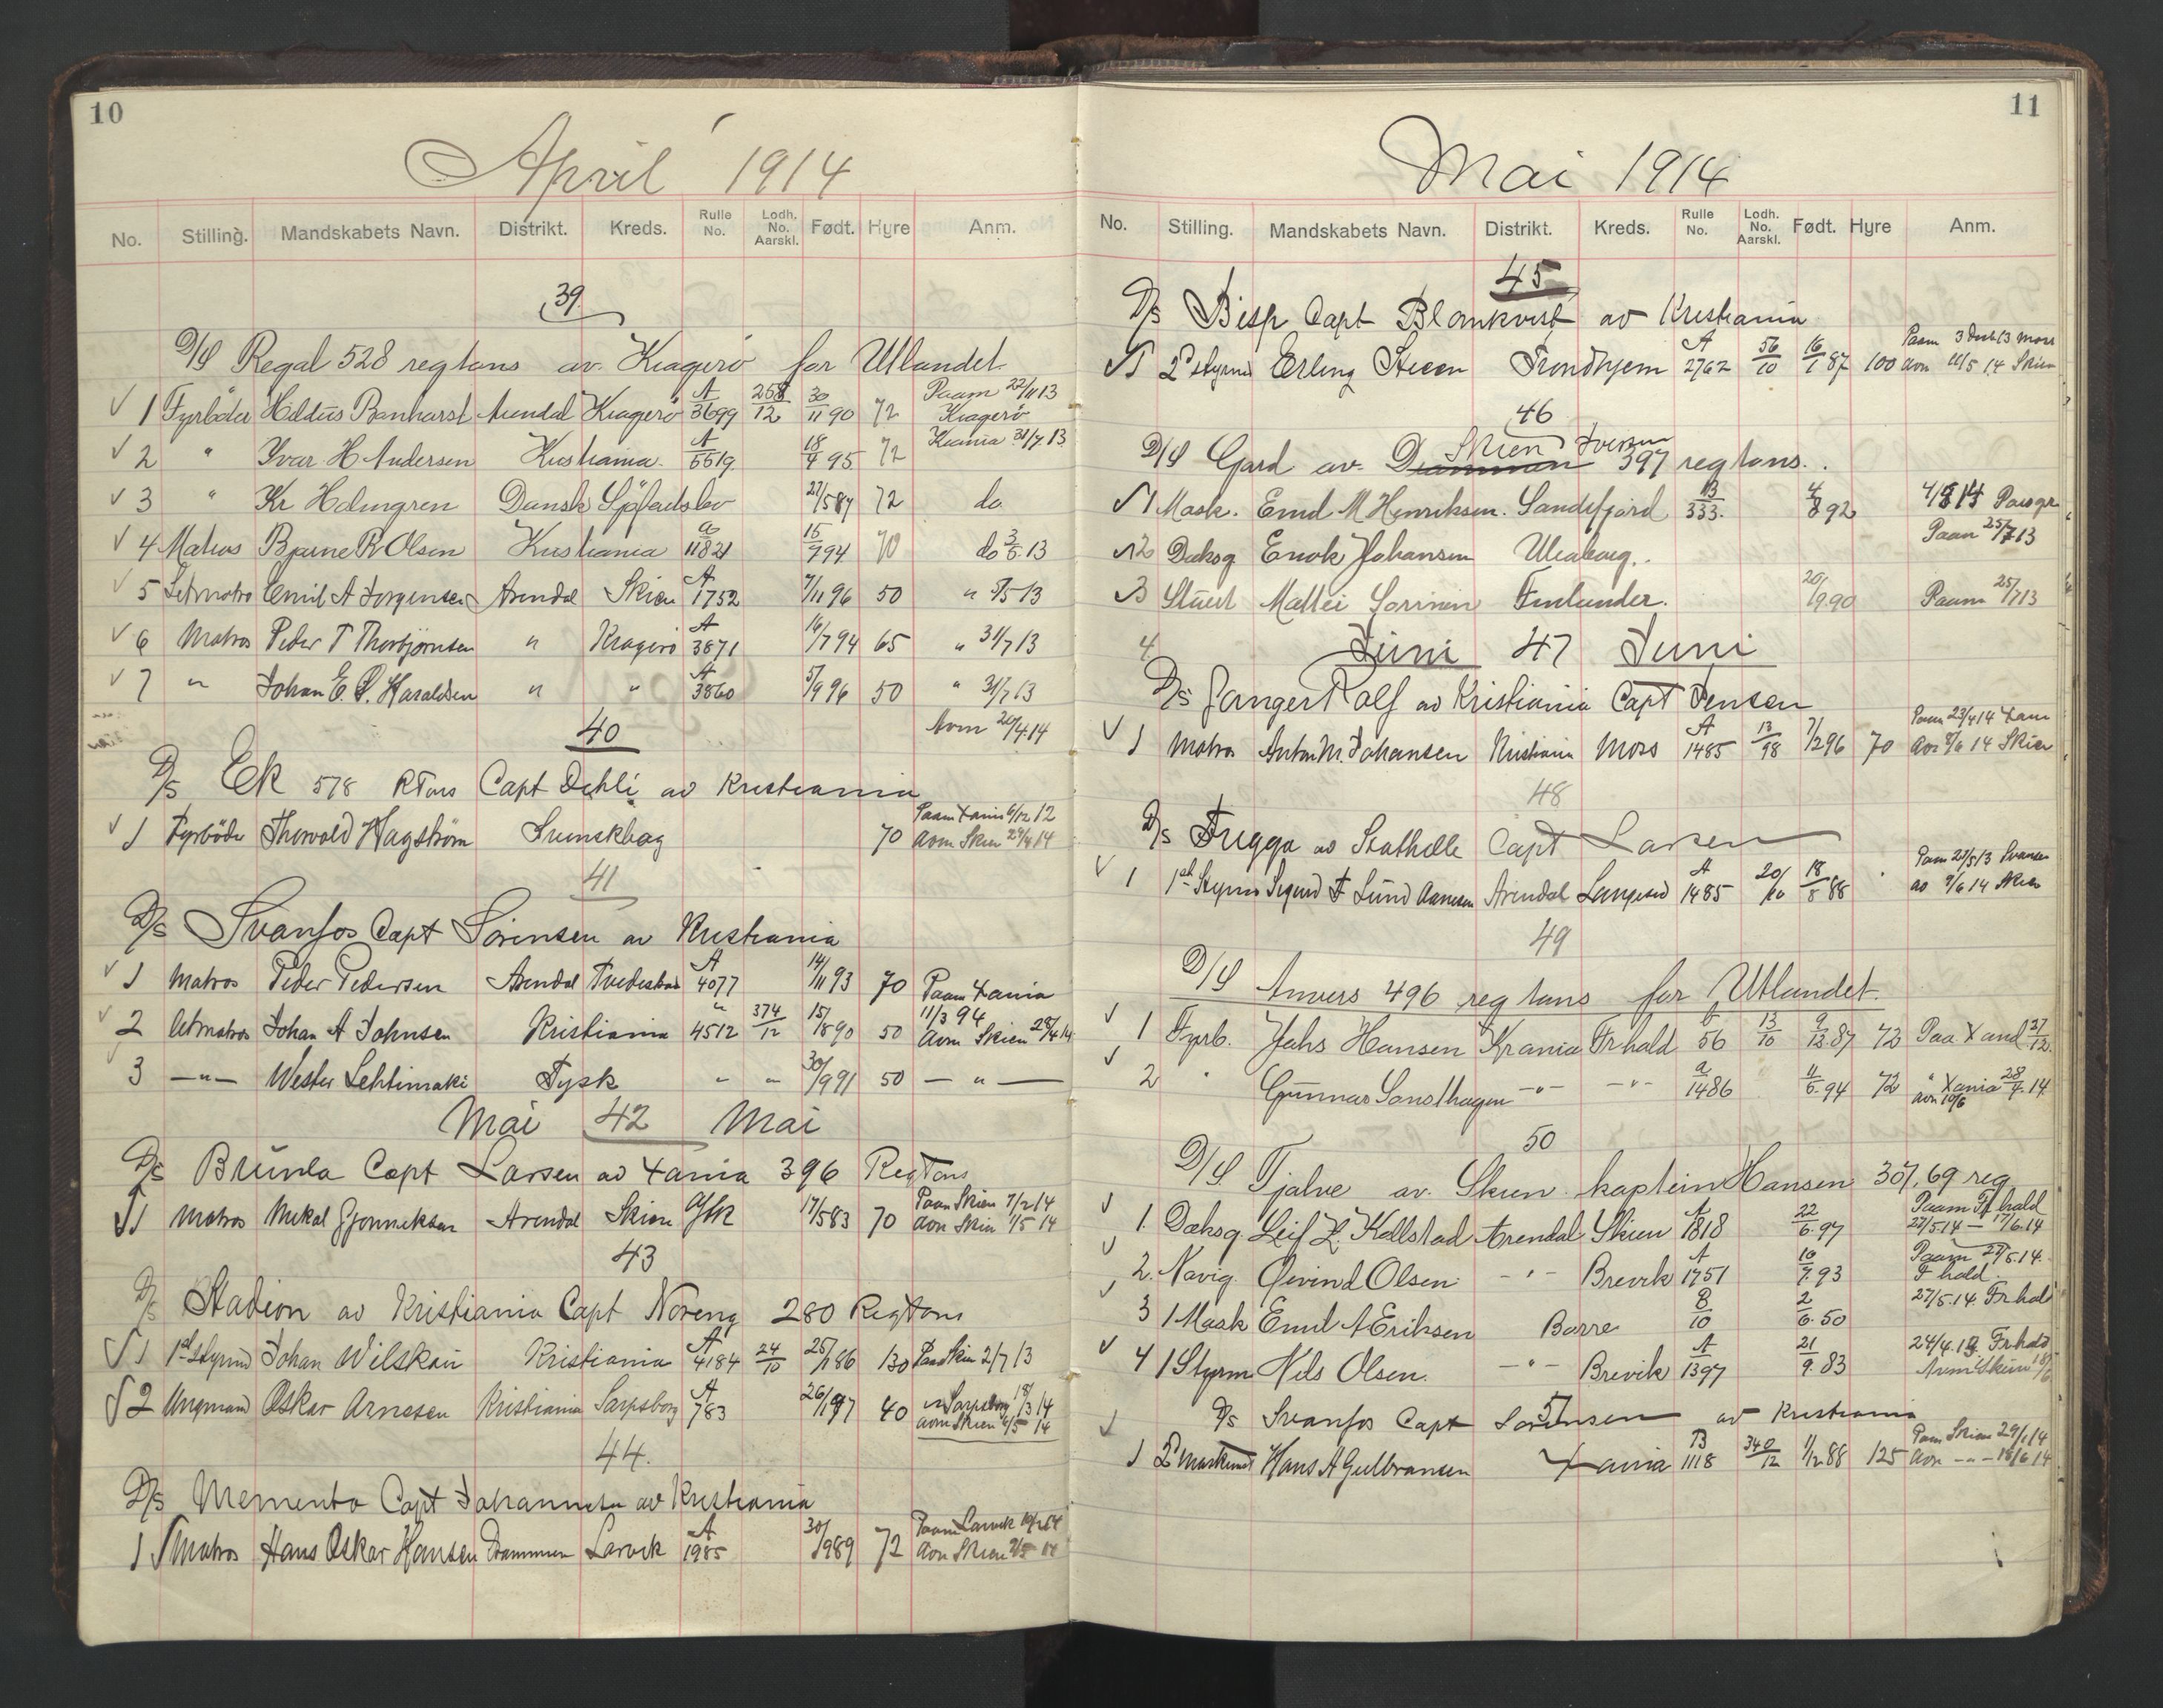 10
April 1914
No. Stilling. Mandskabets Navn. Distrikt. Kreds. Rulle No. Lodh. No. Aarskl. Født. Hyre Anm.
39
D/S Regal 528 regtons av. Kragerö for Utlandet
1 Fyrböder Hildus Arendal Kragerö A/3699 258/12 30/11 90 72 Paam 22/11 13 Kragerö
2 " Yvar H Andersen Kristiania A/5519 18/4 95 72 Krania 31/7 13
3 " Kr Holmgren Dansk 27/5 87 72 do
4 Matros Bjarne R Olsen Kristiania a/11821 15/7 94 70 do 3/5 13
5 Letmatros Emil A Jorgensen Arendal Skien A/1752 7/11 96 50 " 3/5 13
6 Matros Peder T Thorbjørnsen " Kragerö A/3871 16/7 94 65 " 31/7 13
7 " Johan E. P. Haraldsen " " A/3860 5/9 96 50 " 31/7 13
Avm 20/4 14
40
D/S Ek 578 RTons Capt Dehli av Kristiania
1 Fyrböder Thorvald Hagström Svensk 70 Paam Xania 6/12 12 Avm Skien 29/4 14
41
D/S Svanfos Capt Sörensen av Kristiania
1 Matros Peder Pedersen Arendal Tvedestrand A/4077 14/11 93 70 Paam Xania
2 letmatros Johan A Johnsen Kristiania "/4512 374/12 15/1 890 50 11/3 94 Avm Skien 28/4 14
3 — " — Wester Lehtimaki Tysk " " 30/9 91 50 — " —
Mai 42 Mai
D/S Brünla Capt Larsen av Xania 396 RegTons
1 Matros Mikal Gjonneksen Arendal Skien 17/5 83 70 Paam Skien 7/2 14 Avm Skien 1/5 14
43
D/S Stadion av Kristiania Capt Noreng 280 RegTons
1 1st Styrmd Johan Wilskau Kristiania A/4184 24/10 25/1 86 130 Paa Skien 2/7 13
2 Ungmand Oskar Arnesen Kristiania Sarpsborg A/783 26/1 97 40 " Sarpsborg 18/3 14 avm Skien 4/5 14
44.
D/S Memento Capt Johannesen av Kristiania
1 Matros Hans Oskar Hansen Drammen Larvik A/1985 30/9 89 72 Paam Larvik 10/2 14 Avm Skien 14
11
Mai 1914
No. Stilling. Mandskabets Navn. Distrikt. Kreds. Rulle No. Lodh. No. Aarskl. Født. Hyre Anm.
45
D/S Bisp Capt Blomkvist av Kristiania
1 2d styrmd Erling Steen Trondhjem A/2762 56/10 16/1 87 100 Paam 3 Decb 13 Moss avm 11/5 14 Skien
46
D/S Gard av. Drammen Skien Iversen 397 regtons.
1 Mask. Emil M Henriksen. Sandefjord B/333. 4/8 92 Porsgr
2 Daksg Enok Johansen Uleaborg. Paam 25/7 13
3 Stuert Mattei Sorrinen Finlander. 20/9. 90 Paam 25/7 13
4 Juni 47 Juni
D/S Ganger Rolf av Kristiania Capt Jensen
1 Matros Anton M. Johansen Kristiania Moss A/1485 13/98 7/2 96 70 Paam 23/4 14 Xania Avm 8/6 14 Skien
48
D/S Frigga av Stathelle Capt Larsen
1 1st Styrm Sigurd F Lünd Aanesen Arendal Langesund A/1485 20/10 18/8 88 Paam 23/5 13 av 9/6 14 Skien
49
D/S Anvers 496 reg tons for Utlandet.
1 Fyrb. Johs Hansen Krania Frhald 56 13/10 9/12. 87 72 Paa Xand 27/12.
2 " Gunnar Sonsthagen — " — — " — a/1486 11/6. 94 72 " Xania 28/4. 14 avm 10/6
50
D/S Tjalve av. Skien kaptein Hansen 307,69 reg
1. Daksg. Leif L. Kollstad Arendal Skien A/1818 22/6. 97 Paam Fr hald 27/5 14 — 17/6 14
2. Navig Øivind Olsen — " — Brevik A/1751 10/7. 93 Paam 27/5 14. F hald
3 1 Mask Emil A Eriksen Borre 8/10 2/6. 50 27/5. 14. Frhald
4 1 Styrm Nils Olsen. — " — Brevik A/1397 21/9. 83 24/4. 13 Frhald Avm Skien 18/6
51
D/S Svanfos Capt Sorensen av Kristiania
1 2d Maskinist Hans A Gulbransen Xania B/1118 340/12 1/12 88 125 Paam Skien 29/1 14 Avm — " — 18/6 14